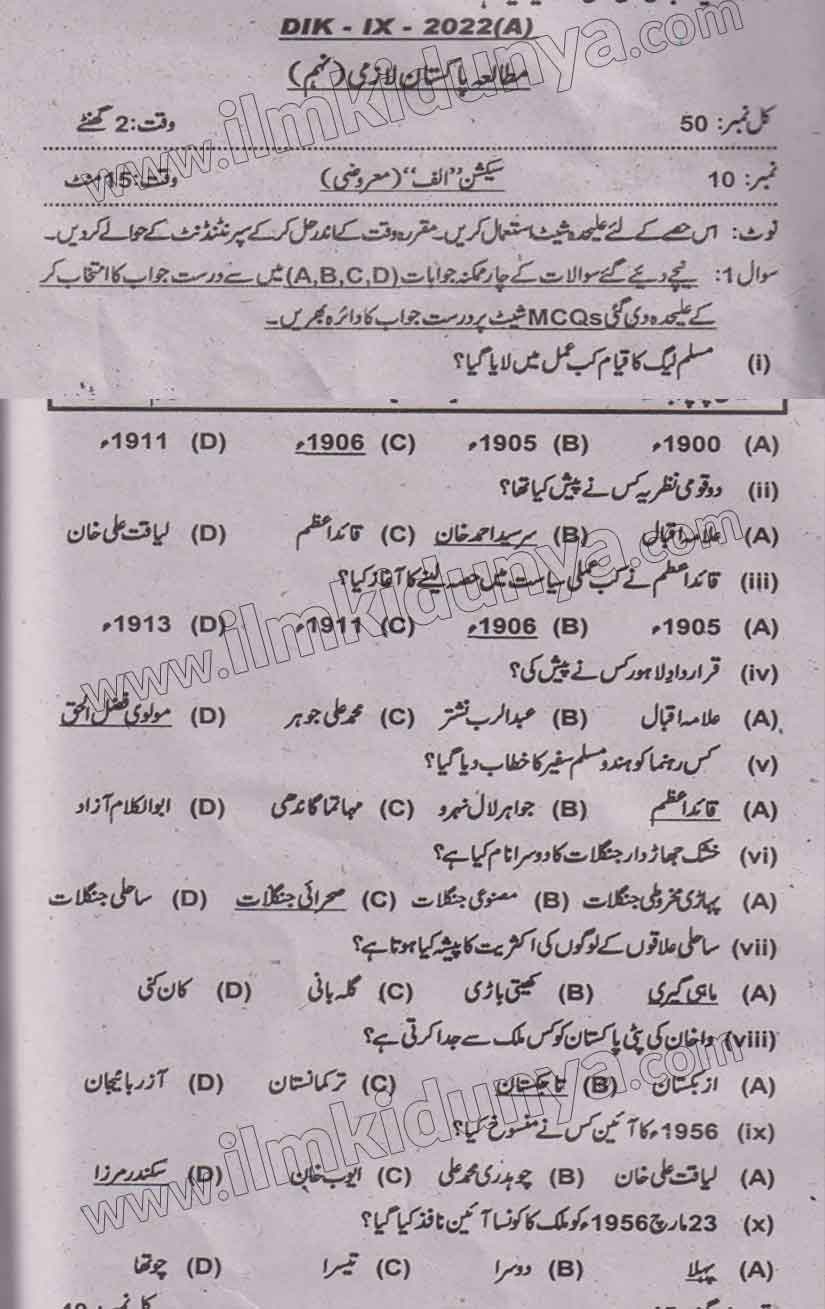 DIK - IX - 2022(A)
مطالعہ پاکستان لازمی (نہم)
کل نمبر: 50 وقت: 2 گھنٹے
نمبر: 10 سیکشن "الف" (معروضی) وقت: 15 منٹ
نوٹ: اس حصے کے لئے علیحدہ شیٹ استعمال کریں۔ مقررہ وقت کے اندر حل کر کے سپرنٹنڈنٹ کے حوالے کر دیں۔
سوال 1: نیچے دیئے گئے سوالات کے چار ممکنہ جوابات (A,B,C,D) میں سے درست جواب کا انتخاب کر
کے علیحدہ دی گئی MCQs شیٹ پر درست جواب کا دائرہ بھریں۔
(i) مسلم لیگ کا قیام کب عمل میں لایا گیا؟
(A) 1900ء (B) 1905ء (C) 1906ء (D) 1911ء
(ii) دو قومی نظریہ کس نے پیش کیا تھا؟
(A) علامہ اقبال (B) سرسید احمد خان (C) قائداعظم (D) لیاقت علی خان
(iii) قائداعظم نے کب عملی سیاست میں حصہ لینے کا آغاز کیا؟
(A) 1905ء (B) 1906ء (C) 1911ء (D) 1913ء
(iv) قرارداد لاہور کس نے پیش کی؟
(A) علامہ اقبال (B) عبدالرب نشتر (C) محمد علی جوہر (D) مولوی فضل الحق
(v) کس رہنما کو ہندو مسلم سفیر کا خطاب دیا گیا؟
(A) قائداعظم (B) جواہر لال نہرو (C) مہاتما گاندھی (D) ابوالکلام آزاد
(vi) خشک جھاڑ دار جنگلات کا دوسرا نام کیا ہے؟
(A) پہاڑی مخروطی جنگلات (B) مصنوعی جنگلات (C) صحرائی جنگلات (D) ساحلی جنگلات
(vii) ساحلی علاقوں کے لوگوں کی اکثریت کا پیشہ کیا ہوتا ہے؟
(A) ماہی گیری (B) کھیتی باڑی (C) گلہ بانی (D) کان کنی
(viii) واخان کی پٹی پاکستان کو کس ملک سے جدا کرتی ہے؟
(A) ازبکستان (B) تاجکستان (C) ترکمانستان (D) آزربائیجان
(ix) 1956ء کا آئین کس نے منسوخ کیا؟
(A) لیاقت علی خان (B) چوہدری محمد علی (C) ایوب خان (D) سکندر مرزا
(x) 23 مارچ 1956ء کو ملک کا کونسا آئین نافذ کیا گیا؟
(A) پہلا (B) دوسرا (C) تیسرا (D) چوتھا
www.ilmkidunya.com
www.ilmkidunya.com
www.ilmkidunya.com